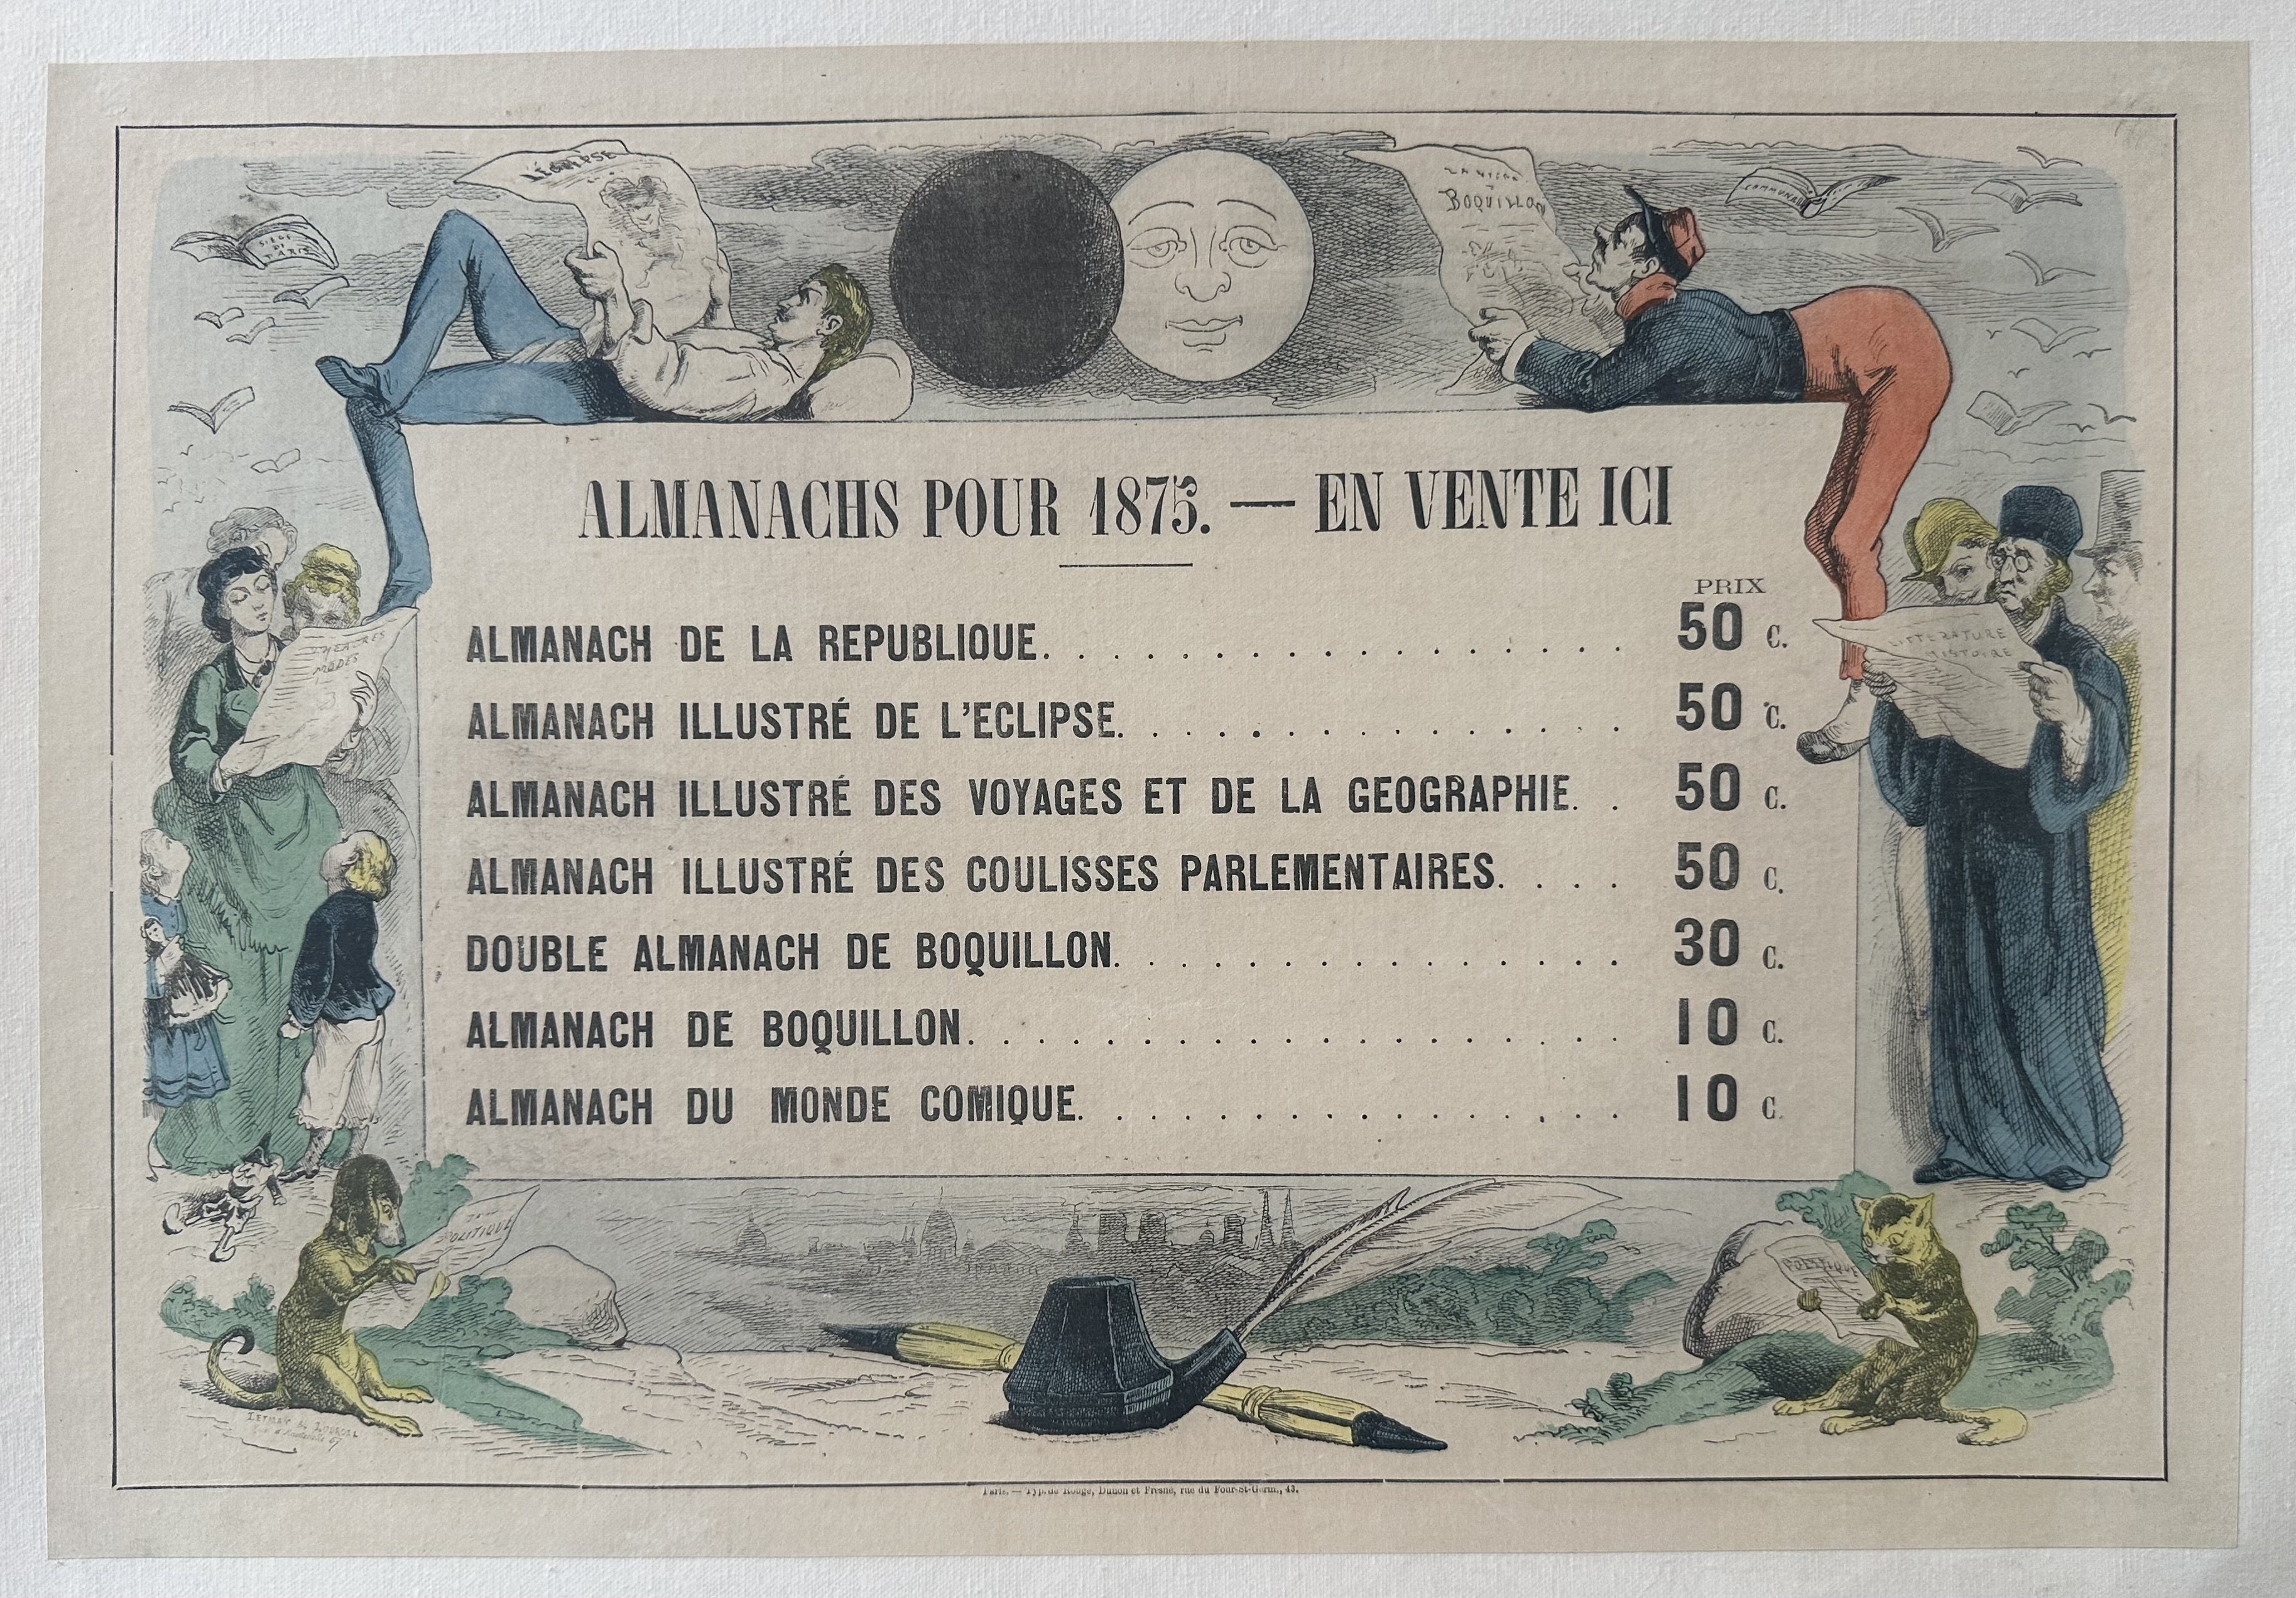 L'ÉCLIPSE
BOQUILLON
SIEGE
DE
PARIS
ALMANACHS POUR 1875. — EN VENTE ICI
PRIX
ALMANACH DE LA REPUBLIQUE. 50 C.
ALMANACH ILLUSTRÉ DE L'ECLIPSE. 50 C.
ALMANACH ILLUSTRÉ DES VOYAGES ET DE LA GEOGRAPHIE. 50 C.
ALMANACH ILLUSTRÉ DES COULISSES PARLEMENTAIRES. 50 C.
DOUBLE ALMANACH DE BOQUILLON. 30 C.
ALMANACH DE BOQUILLON. 10 C.
ALMANACH DU MONDE COMIQUE. 10 C.
MODES
LITTERATURE
HISTOIRE
POLITIQUE
POLITIQUE
Paris. — Typ. de Rouge, Dunon et Fresné, rue du Four-St-Germ., 43.